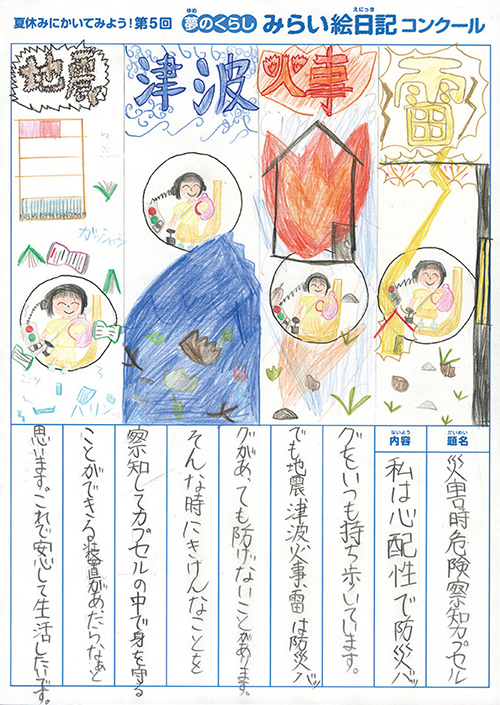 夏休みにかいてみよう！第5回 夢のくらし みらい絵日記 コンクール
ゆめ
えにっき
地震
津波
火事
雷
ガッシャン
パリン
だいめい
題名
災害時危険察知カプセル
ないよう
内容
私は心配性で防災バッ
グをいつも持ち歩いています。
でも地震、津波、火事、雷は防災バッ
グがあっても防げないことがあります。
そんな時にきけんなことを
察知してカプセルの中で身を守る
ことができる装置があったらなぁと
思います。これで安心して生活したいです。